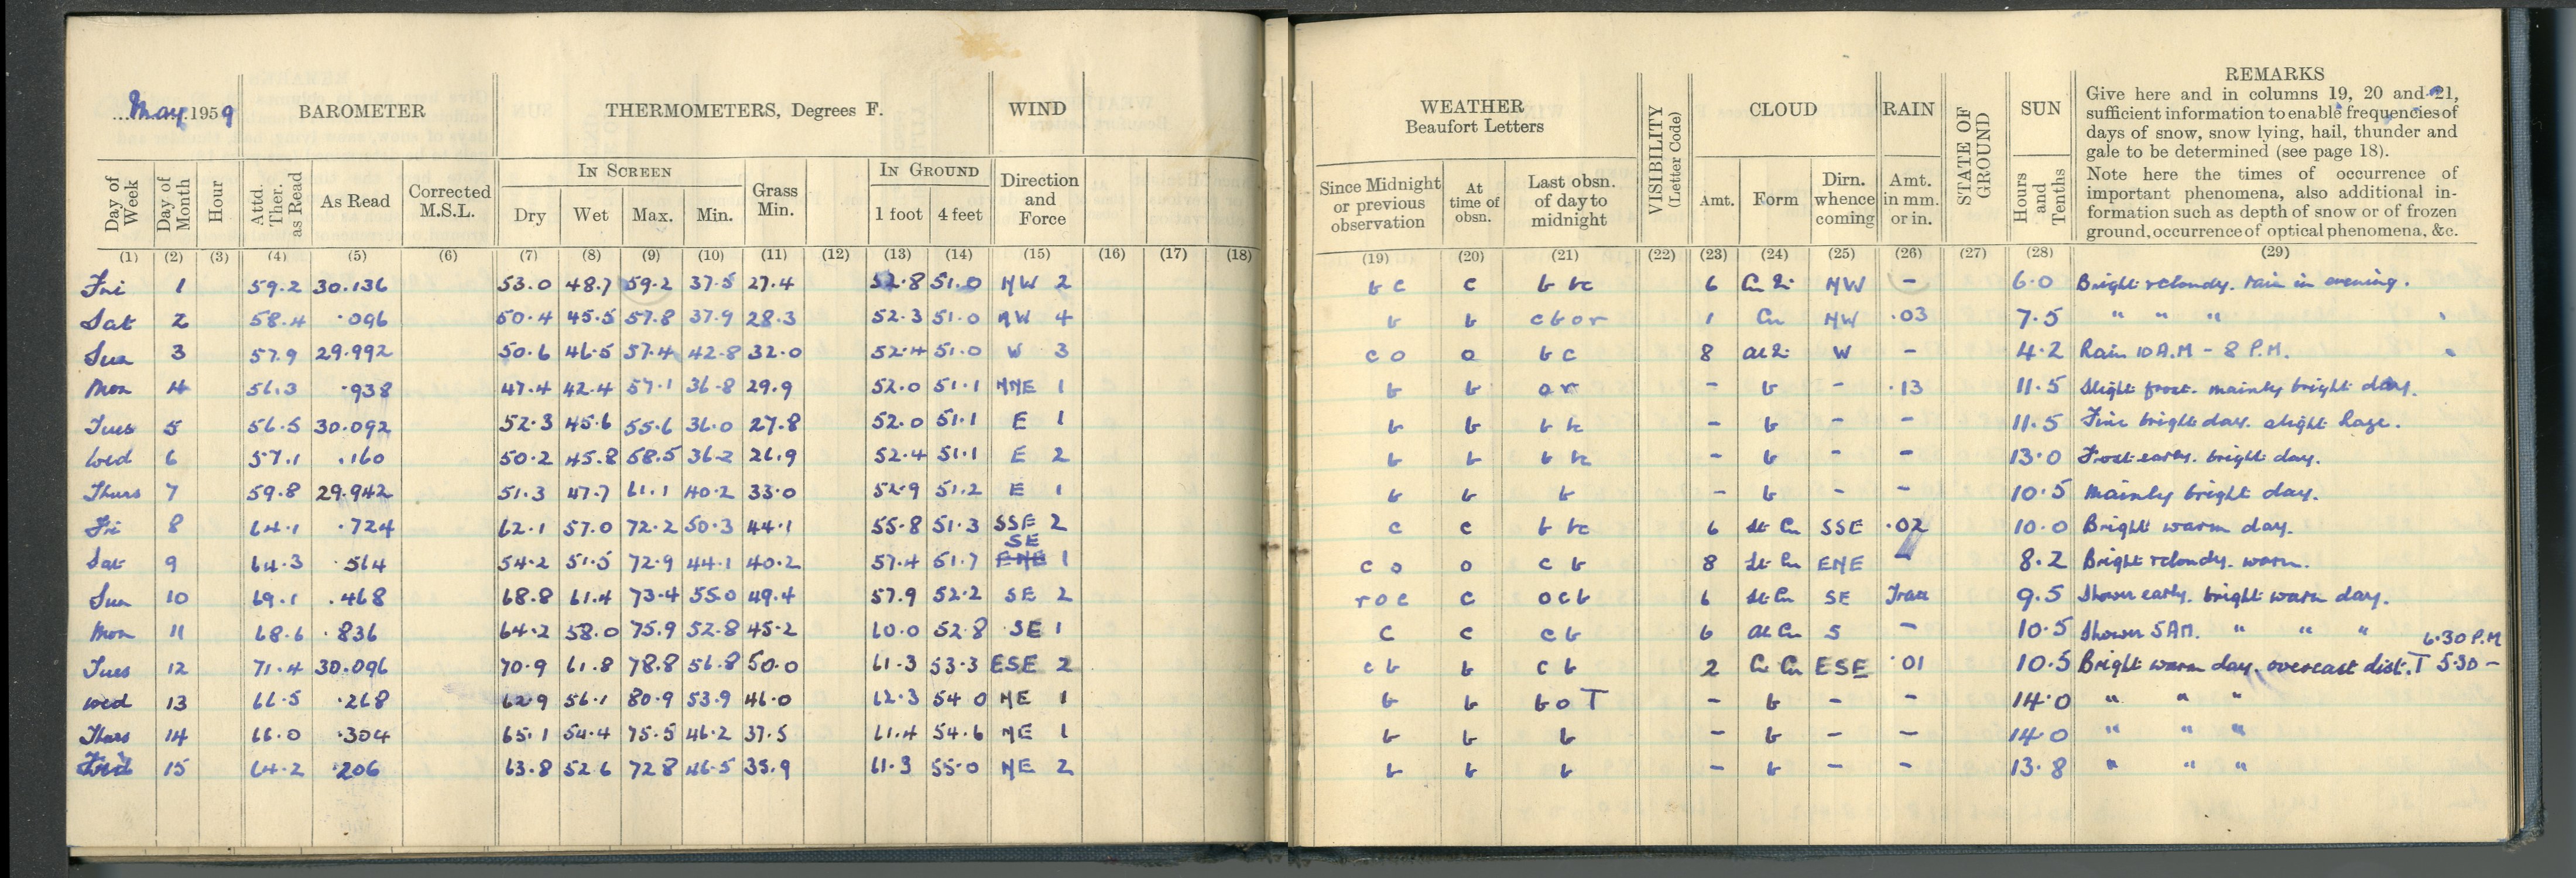 May 1959 BAROMETER THERMOMETERS, Degrees F. WIND
Day of Week Day of Month Hour Attd. Ther. as Read As Read Corrected M.S.L. IN SCREEN Dry Wet Max. Min. Grass Min. IN GROUND 1 foot 4 feet Direction and Force
(1) (2) (3) (4) (5) (6) (7) (8) (9) (10) (11) (12) (13) (14) (15) (16) (17) (18)
Fri 1 59.2 30.136 53.0 48.7 59.2 37.5 27.4 52.8 51.0 NW 2
Sat 2 58.4 .096 50.4 45.5 57.8 37.9 28.3 52.3 51.0 NW 4
Sun 3 57.9 29.992 50.6 46.5 57.4 42.8 32.0 52.4 51.0 W 3
Mon 4 56.3 .938 47.4 42.4 57.1 36.8 29.9 52.0 51.1 NNE 1
Tues 5 56.5 30.092 52.3 45.6 55.6 36.0 27.8 52.0 51.1 E 1
Wed 6 57.1 .160 50.2 45.8 58.5 36.2 26.9 52.4 51.1 E 2
Thurs 7 59.8 29.942 51.3 47.7 61.1 40.2 33.0 52.9 51.2 E 1
Fri 8 64.1 .724 62.1 57.0 72.2 50.3 44.1 55.8 51.3 SSE 2
SE
Sat 9 64.3 .564 54.2 51.5 72.9 44.1 40.2 57.4 51.7 ENE 1
Sun 10 69.1 .468 68.8 61.4 73.4 55.0 49.4 57.9 52.2 SE 2
Mon 11 68.6 .836 64.2 58.0 75.9 52.8 45.2 60.0 52.8 SE 1
Tues 12 71.4 30.096 70.9 61.8 78.8 56.8 50.0 61.3 53.3 ESE 2
Wed 13 66.5 .268 62.9 56.1 80.9 53.9 46.0 62.3 54.0 NE 1
Thurs 14 66.0 .304 65.1 54.4 75.5 46.2 37.5 61.4 54.6 NE 1
15 64.2 .206 63.8 52.6 72.8 46.5 35.9 61.3 55.0 NE 2
WEATHER Beaufort Letters VISIBILITY (Letter Code) CLOUD RAIN STATE OF GROUND SUN REMARKS
Give here and in columns 19, 20 and 21,
sufficient information to enable frequencies of
days of snow, snow lying, hail, thunder and
gale to be determined (see page 18).
Note here the times of occurrence of
important phenomena, also additional in-
formation such as depth of snow or of frozen
ground, occurrence of optical phenomena, &c.
Since Midnight or previous observation At time of obsn. Last obsn. of day to midnight Amt. Form Dirn. whence coming Amt. in mm. or in. Hours and Tenths
(19) (20) (21) (22) (23) (24) (25) (26) (27) (28) (29)
b c c b bc 6 Cu NW - 6.0 Bright & cloudy. rain in evening.
b b c b o r 1 Cu NW .03 7.5 " " "
c o o b c 8 W - 4.2 Rain 10 A.M - 8 P.M.
b b o r - b - .13 11.5 Slight frost. mainly bright day.
b b b bc - b - - 11.5 Fine bright day. slight haze.
b b b bc - b - - 13.0 Frost early. bright day.
b b b - b - - 10.5 Mainly bright day.
c c b bc 6 St Cu SSE .02 10.0 Bright warm day.
c o o c b 8 St Cu ENE - 8.2 Bright & cloudy. warm.
r o c c o c b 6 St Cu SE Trace 9.5 Shower early. bright warm day.
c c c b 6 Al Cu S - 10.5 Shower 5 AM. " " "
6.30 P.M
c b b c b 2 Ci Cu ESE .01 10.5 Bright warm day. overcast dist. T 5.30 -
b b b o T - b - - 14.0 " " "
b b b - b - - 14.0 " " "
b b b - b - - 13.8 " " "